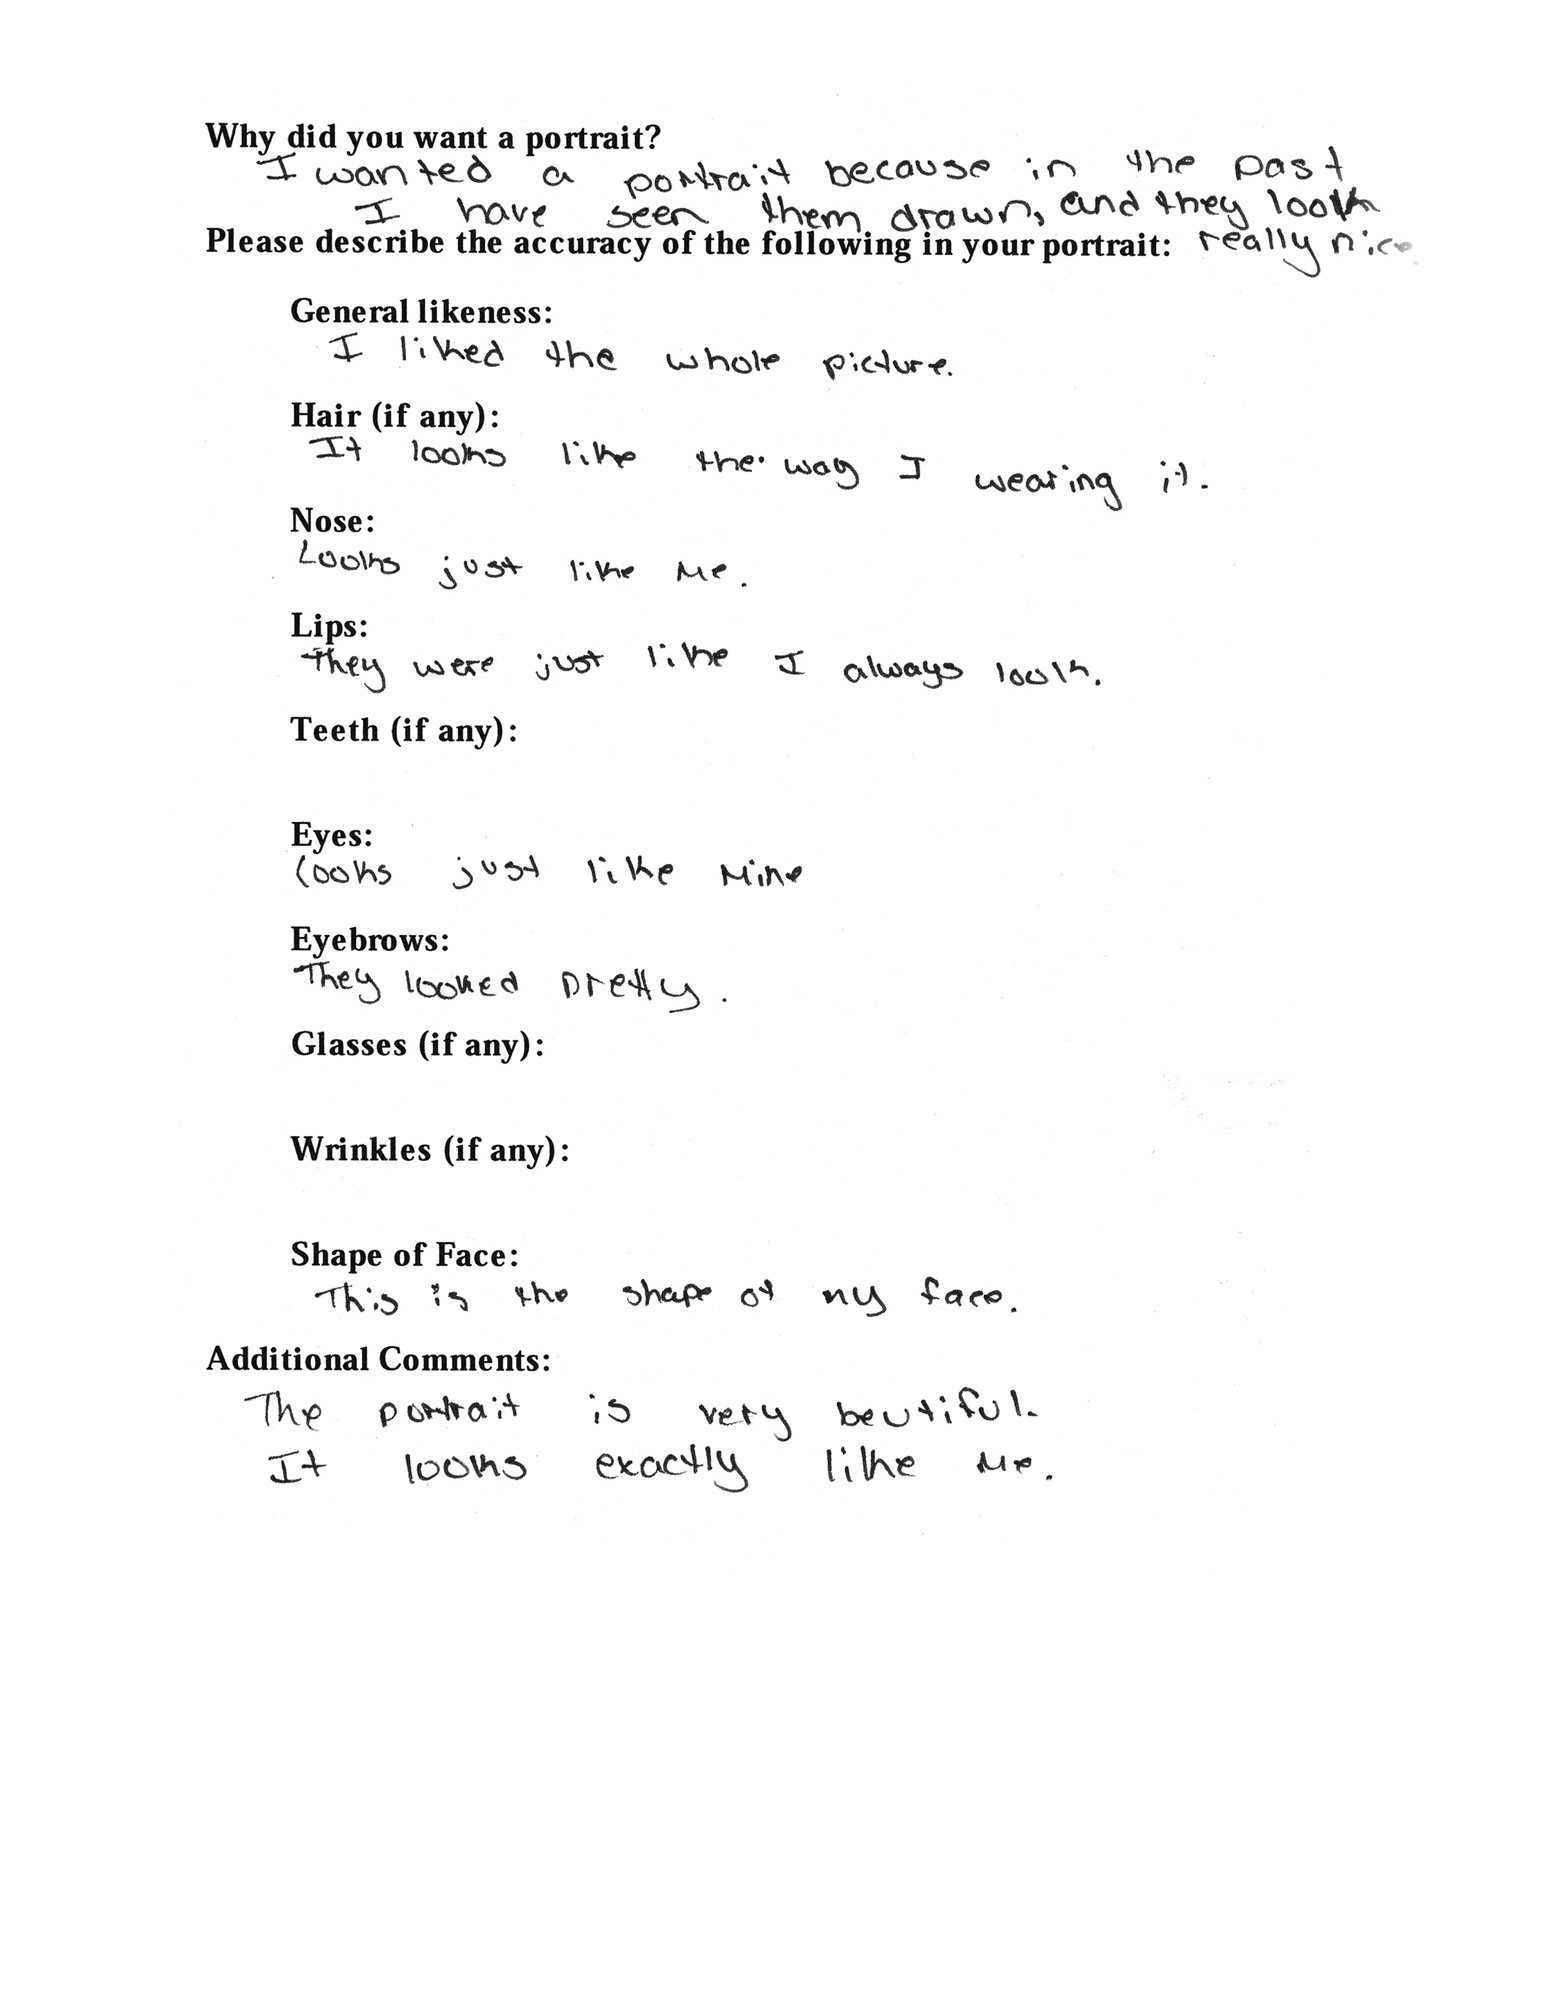 Why did you want a portrait?
I wanted a portrait because in the past
I have seen them drawn, and they look
Please describe the accuracy of the following in your portrait: really nice
General likeness:
I liked the whole picture.
Hair (if any):
It looks like the way I wearing it.
Nose:
Looks just like me.
Lips:
They were just like I always look.
Teeth (if any):
Eyes:
looks just like mine
Eyebrows:
They looked pretty.
Glasses (if any):
Wrinkles (if any):
Shape of Face:
This is the shape of my face.
Additional Comments:
The portrait is very beutiful.
It looks exactly like me.